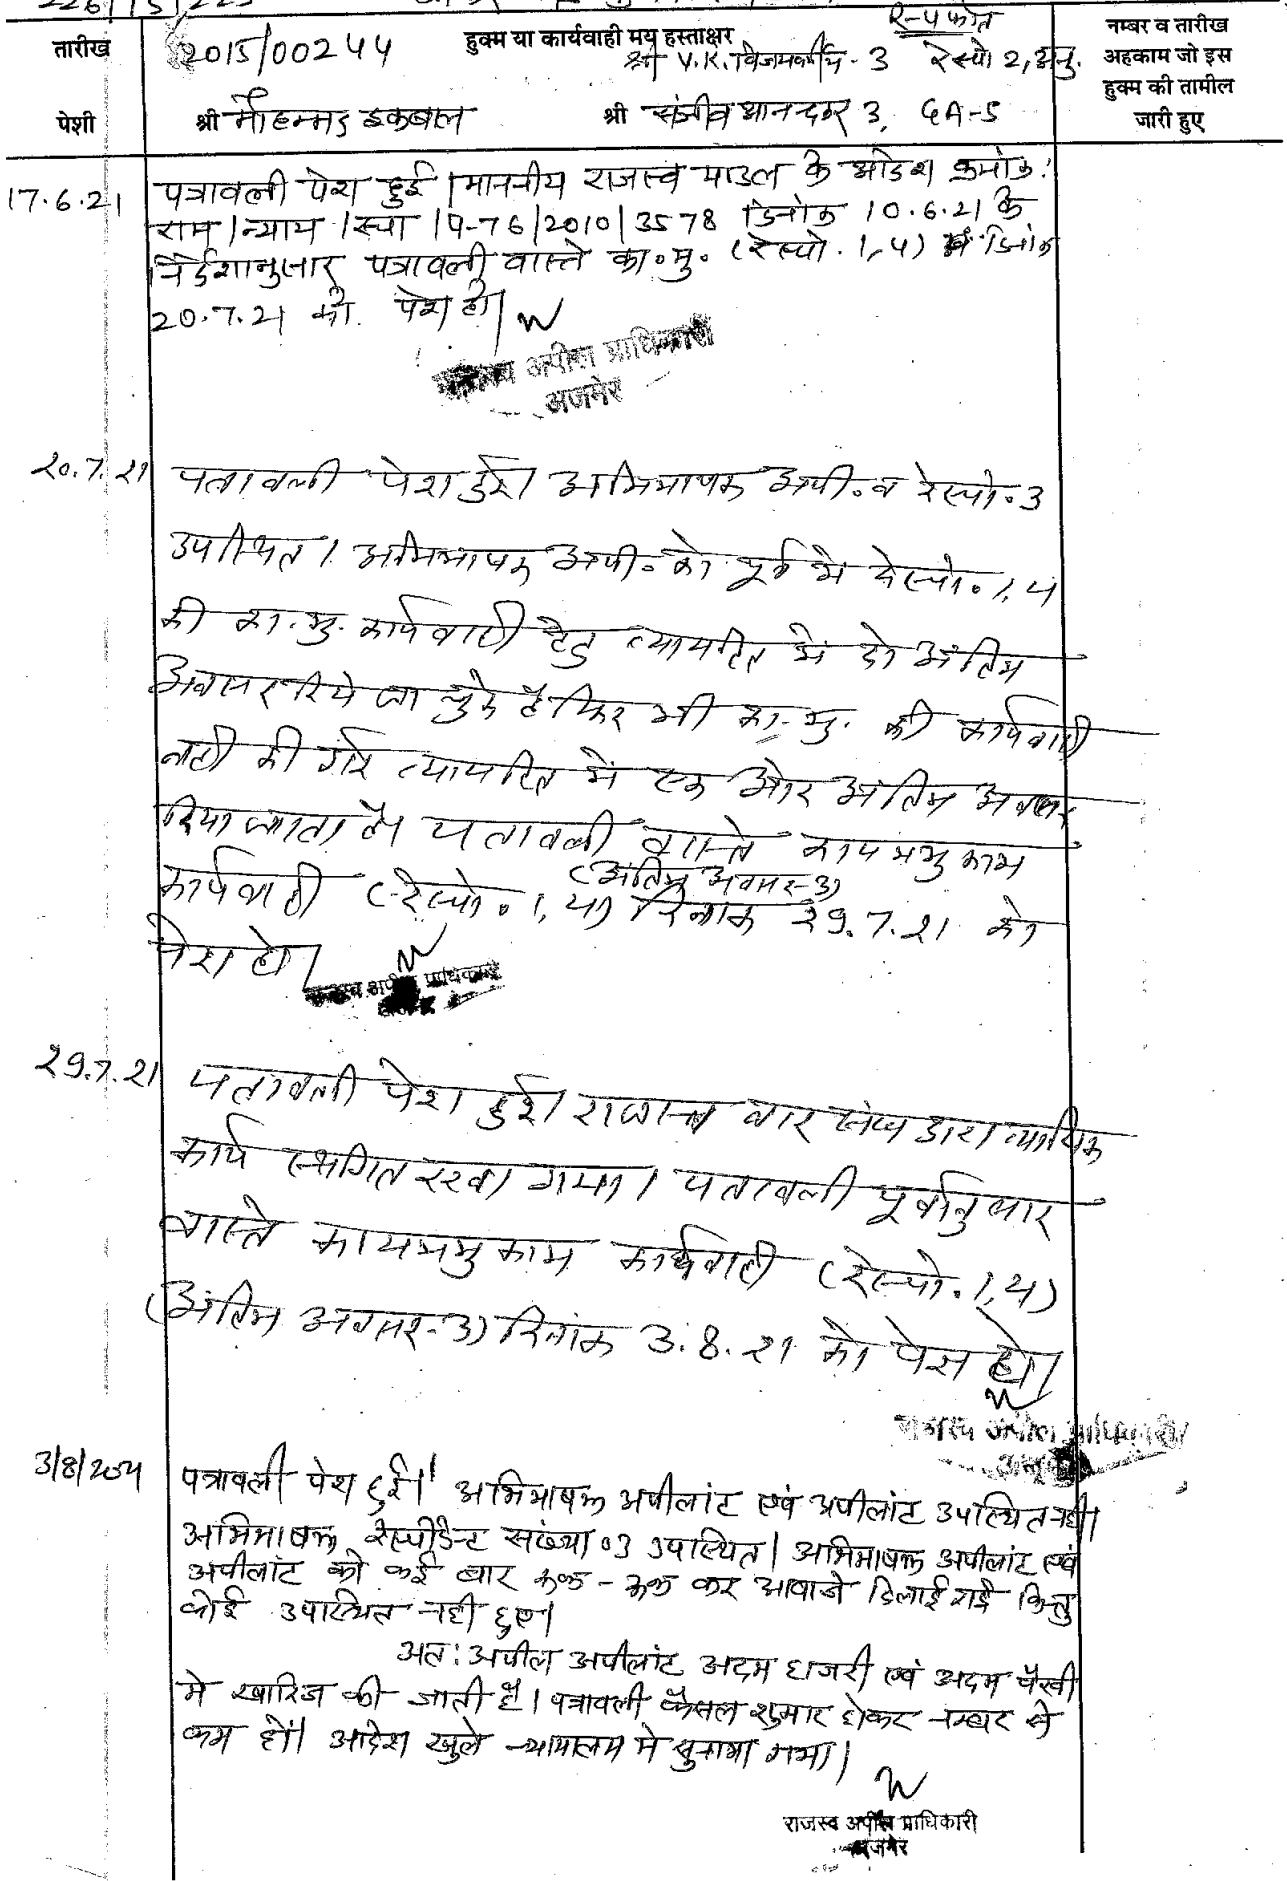 226/15/223
तारीख
पेशी
2015/00244
हुक्म या कार्यवाही मय हस्ताक्षर
R-4 फोत
श्री V.K. विजयवर्गीय - 3 रेस्पो 2, अनु.
श्री मोहम्मद इकबाल श्री संजीव आनन्दकर 3, GA-5
नम्बर व तारीख
अहकाम जो इस
हुक्म की तामील
जारी हुए
17.6.21 पत्रावली पेश हुई। माननीय राजस्व मण्डल के आदेश क्रमांक:
राम/न्याय/स्था/प-76/2010/3578 दिनांक 10.6.21 के
निर्देशानुसार पत्रावली वास्ते का.मु. (रेस्पो. 1,4) दिनांक
20.7.21 को पेश हो।
राजस्व अपील प्राधिकारी
अजमेर
20.7.21 पत्रावली पेश हुई। अभिभाषक अपी. व रेस्पो. 3
उपस्थित। अभिभाषक अपी. को पूर्व में रेस्पो. 1,4
की का.मु. कार्यवाही हेतु न्यायहित में दो अंतिम
अवसर दिये जा चुके है फिर भी का.मु. की कार्यवाही
नही की गई न्यायहित में एक ओर अंतिम अवसर
दिया जाता है पत्रावली वास्ते कायममुकाम
कार्यवाही (रेस्पो. 1,4) (अंतिम अवसर-3) दिनांक 29.7.21 को
पेश हो।
राजस्व अपील प्राधिकारी
29.7.21 पत्रावली पेश हुई। राजस्व बार संघ द्वारा न्यायिक
कार्य स्थगित रखा गया। पत्रावली पूर्वानुसार
वास्ते कायममुकाम कार्यवाही (रेस्पो. 1,4)
(अंतिम अवसर-3) दिनांक 3.8.21 को पेश हो।
राजस्व अपील प्राधिकारी
3/8/2021 पत्रावली पेश हुई। अभिभाषक अपीलांट एवं अपीलांट उपस्थित नही।
अभिभाषक रेस्पोडेन्ट संख्या 03 उपस्थित। अभिभाषक अपीलांट एवं
अपीलांट को कई बार रूक-रूक कर आवाजे दिलाई गई किन्तु
कोई उपस्थित नही हुए।
अत: अपील अपीलांट अदम हाजरी एवं अदम पैरवी
मे खारिज की जाती है। पत्रावली फैसल शुमार होकर नम्बर से
कम हो। आदेश खुले न्यायालय मे सुनाया गया।
राजस्व अपील प्राधिकारी
अजमेर